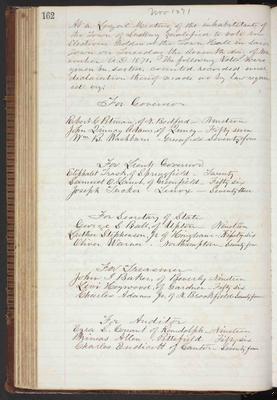 Nov 1871
162
At a Legal Meeting of the inhabitants of
the Town of Hadley qualified to vote in
Elections holden at the Town Hall in said
Town on Tuesday the seventh day of Nov-
ember A.D. 1871. The following Votes were
given in, sorted, counted recorded and
declaration thereof made as by law requi-
red viz:
For Governor
Robert C. Pitman, of N. Bedford — Nineteen
John Quincy Adams of Quincy — Fifty seven
Wm B. Washburn — Greenfield Seventy four
For Lieut. Governor
Eliphalet Trask of Springfield — Twenty
Samuel O. Lamb of Greenfield — Fifty six
Joseph Tucker — Lenox — Seventy three
For Secretary of State
George S. Ball, of Upton — Nineteen
Luther Stephenson Jr of Hingham — Fifty six
Oliver Warner — Northampton Seventy four
For Treasurer
John I. Baker, of Beverly Nineteen
Levi Heywood, of Gardner Fifty six
Charles Adams Jr, of N. Brookfield Seventy four
For Auditor
Ezra S. Conant of Randolph — Nineteen
Phinehas Allen Pittsfield Fifty six
Charles Endicott of Canton Seventy four